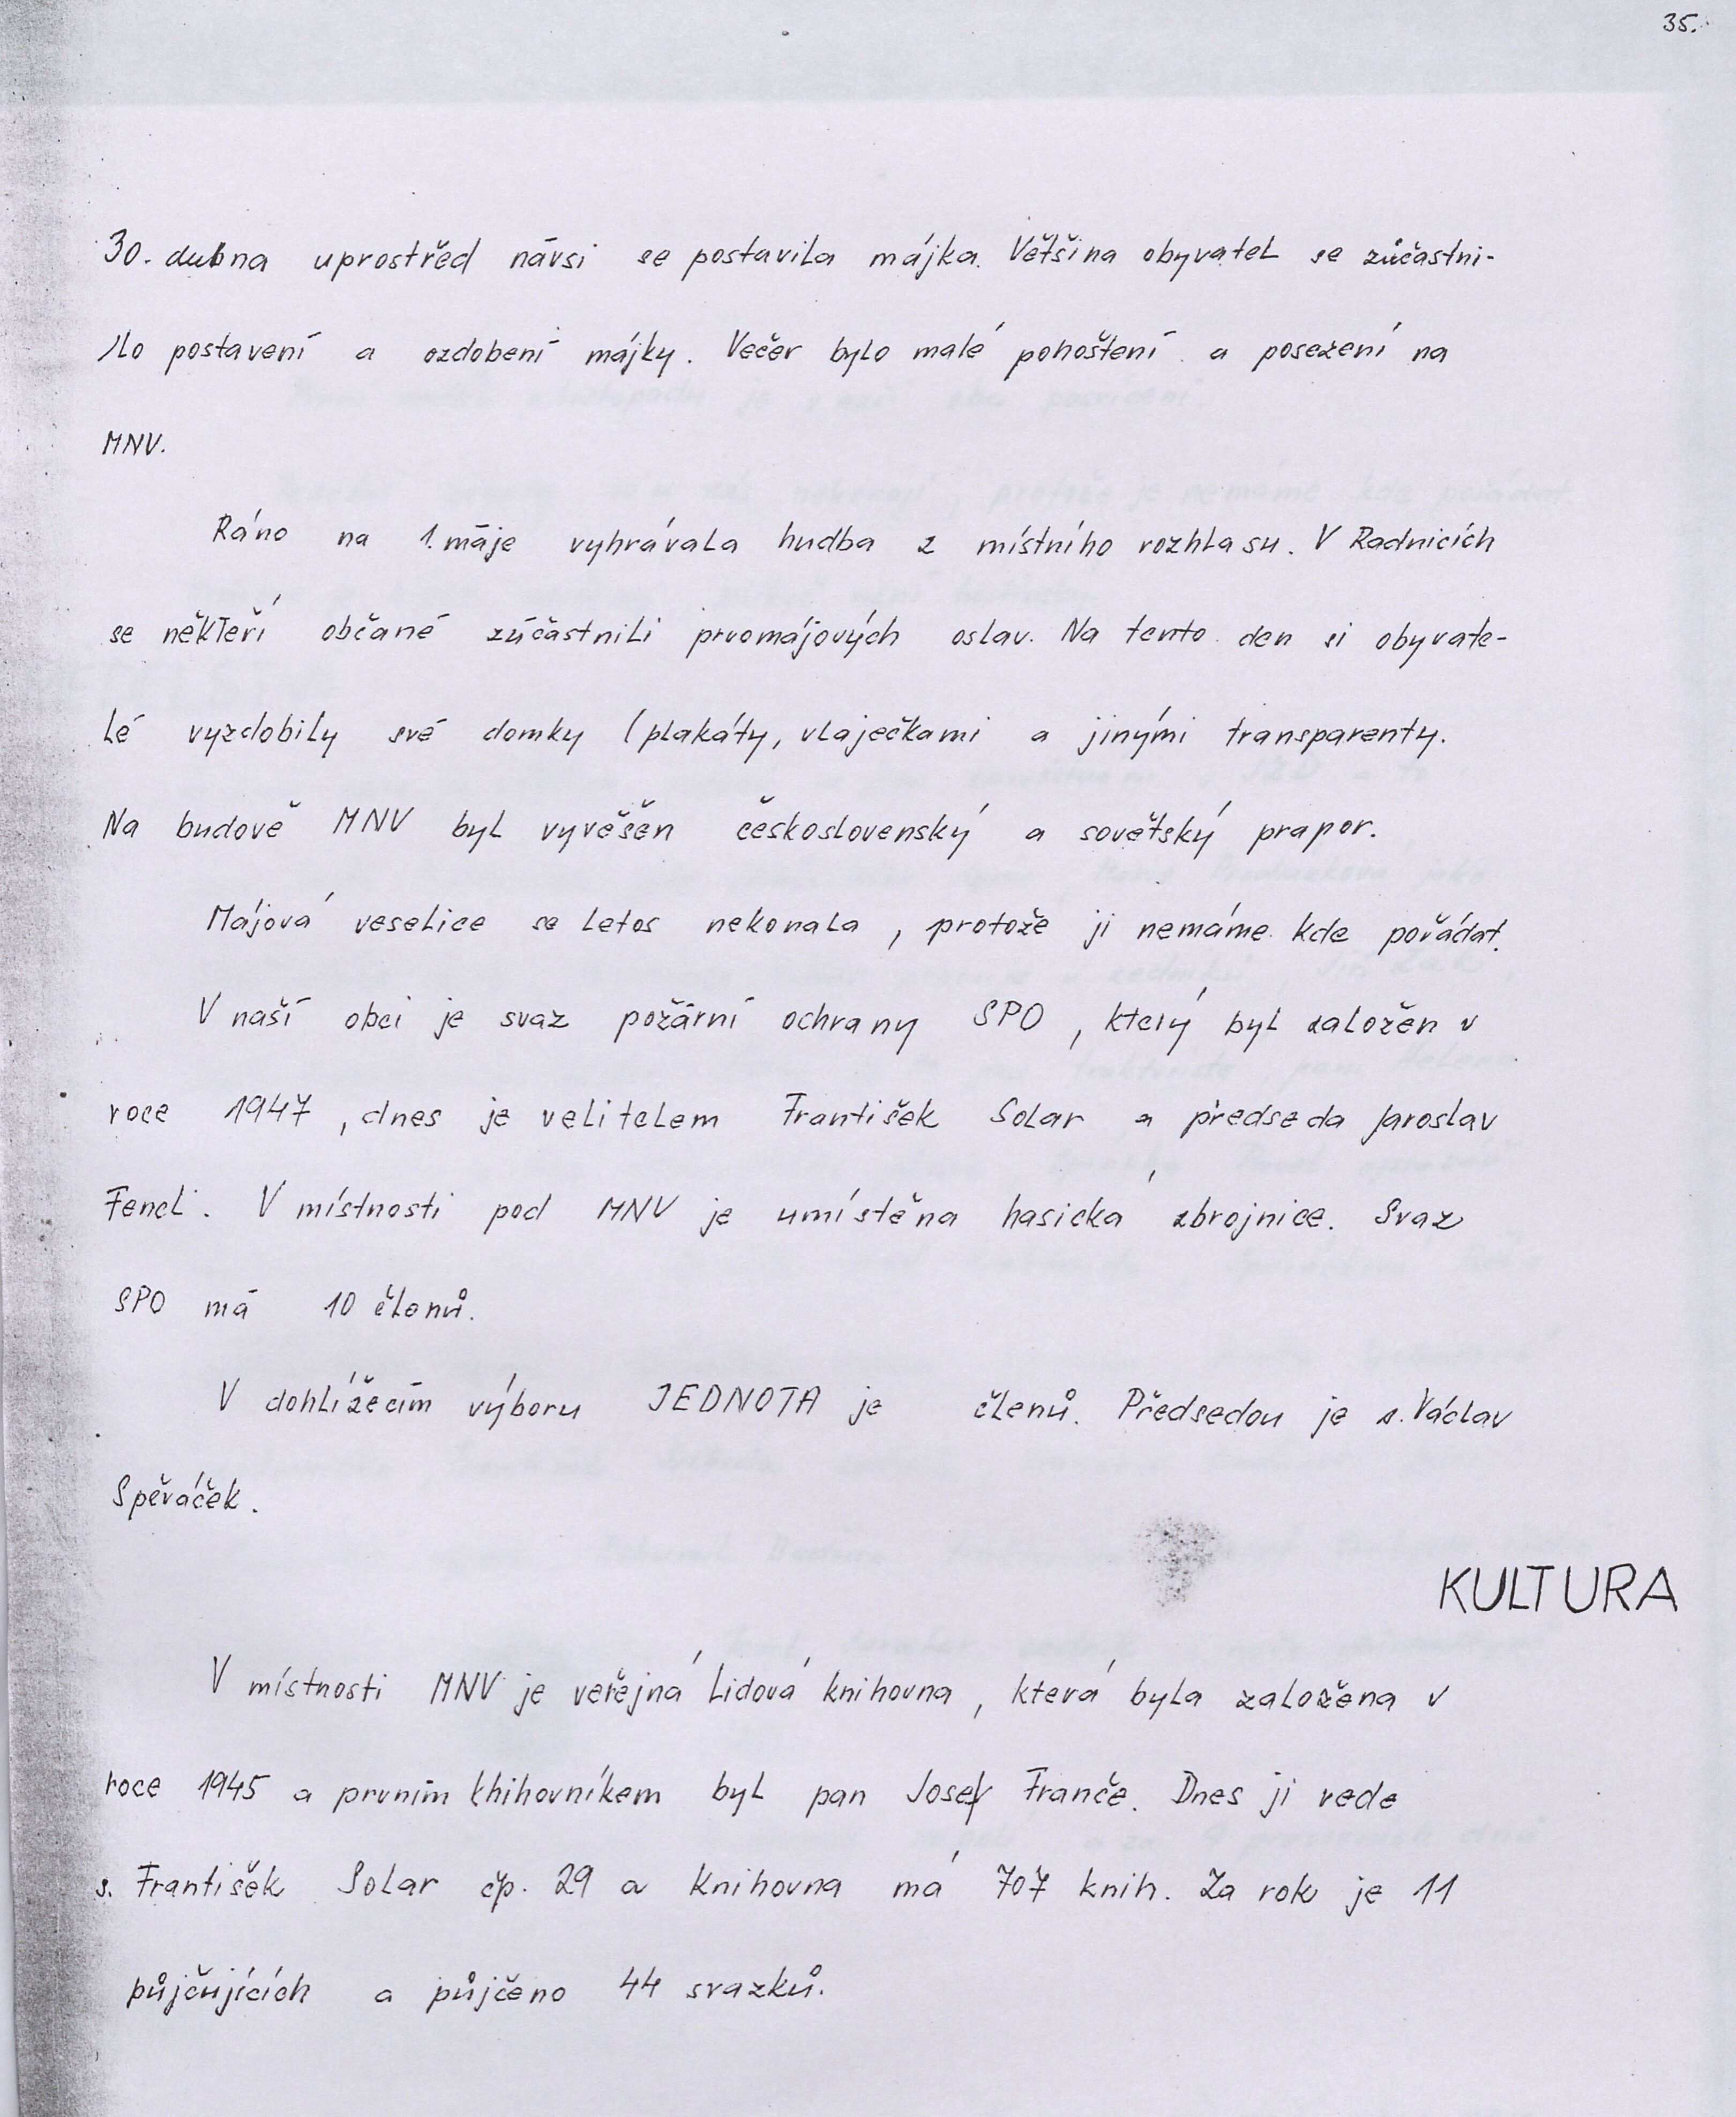 35.
30. dubna uprostřed návsi se postavila májka. Většina obyvatel se zůčastni-
lo postavení a ozdobení májky. Večer bylo malé pohoštení a posezení na
MNV.
Ráno na 1. máje vyhrávala hudba z místního rozhlasu. V Radnicích
se někteří občané zúčastnili prvomájových oslav. Na tento den si obyvate-
lé vyzdobily své domky (plakáty, vlaječkami a jinými transparenty.
Na budově MNV byl vyvěšen československý a sovětský prapor.
Májová veselice se letos nekonala, protože ji nemáme kde pořádat.
V naší obci je svaz požární ochrany SPO, který byl založen v
roce 1947, dnes je velitelem František Solar a předseda Jaroslav
Fencl. V místnosti pod MNV je umístěna hasická zbrojnice. Svaz
SPO má 10 členů.
V dohlížecím výboru JEDNOTA je členů. Předsedou je s. Václav
Spěváček.
KULTURA
V místnosti MNV je veřejná Lidová knihovna, která byla založena v
roce 1945 a prvním knihovníkem byl pan Josef Franče. Dnes ji vede
s. František Solar čp. 29 a knihovna má 707 knih. Za rok je 11
půjčujících a půjčeno 44 svazků.